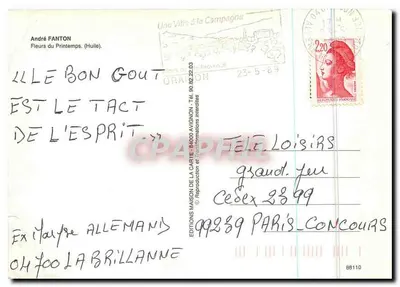 André FANTON
Fleurs du Printemps, (Huile).
Une Ville à la Campagne
23-5-89
2,20
« LE BON GOUT
EST LE TACT
DE L'ESPRIT »
TELE LOISIRS
grand jeu
Cedex 2399
99239 PARIS-CONCOURS
ALLEMAND
04700 LA BRILLANNE
EDITIONS MAISON DE LA CARTE - 84000 AVIGNON - Tél. 90.82.22.03
88110